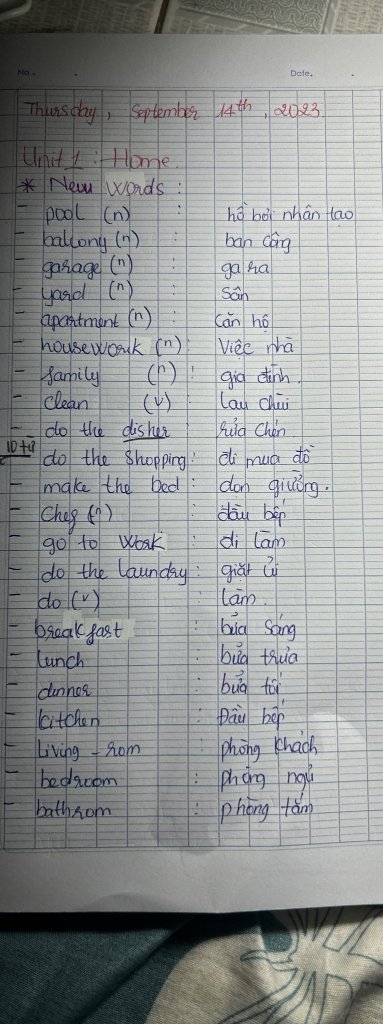 No.
Date.
Thursday, September 14th, 2023
Unit 1 : Home.
* New words :
- pool (n) : hồ bơi nhân tạo
- balcony (n) : ban công
- garage (n) : ga ra
- yard (n) : sân
- apartment (n) : căn hộ
- housework (n) : Việc nhà
- family (n) : gia đình.
- clean (v) : lau chùi
- do the disher : rửa chén
10 từ
- do the shopping : đi mua đồ
- make the bed : dọn giường.
- chef (n) : đầu bếp
- go to work : đi làm
- do the laundry : giặt ủi
- do (v) : làm.
- breakfast : bữa sáng
- lunch : bữa trưa
- dinner : bữa tối
- kitchen : Đầu bếp
- Living - rom : phòng khách
- bedroom : phòng ngủ
- bathrom : phòng tắm